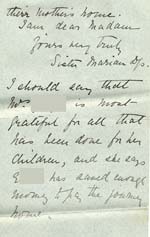 their mother's home.
I am, dear Madam
Yours very truly
Sister Marian Dss.
I should say that
Mrs is most
grateful for all that
has been done for her
Children, and she says
E has saved enough
money to pay the journey
home.